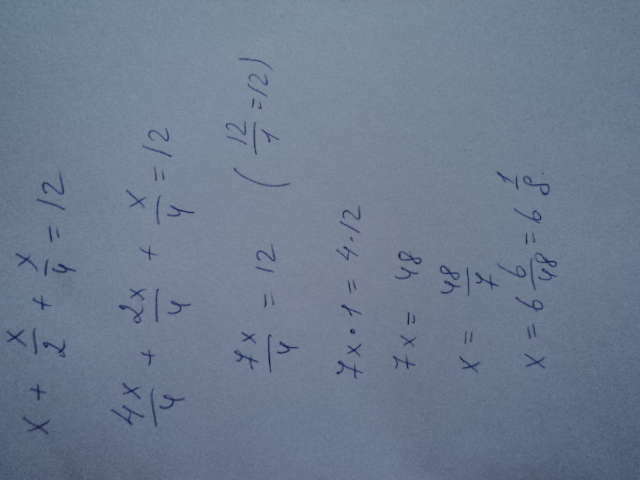 x + x/2 + x/4 = 12
4x/4 + 2x/4 + x/4 = 12
7x/4 = 12 (12/1 = 12)
7x · 1 = 4 · 12
7x = 48
x = 48/7
x = 6 6/48 = 6 1/8.